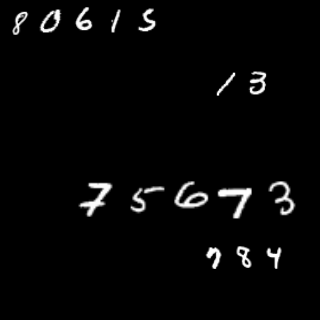 80615
13
75673
784